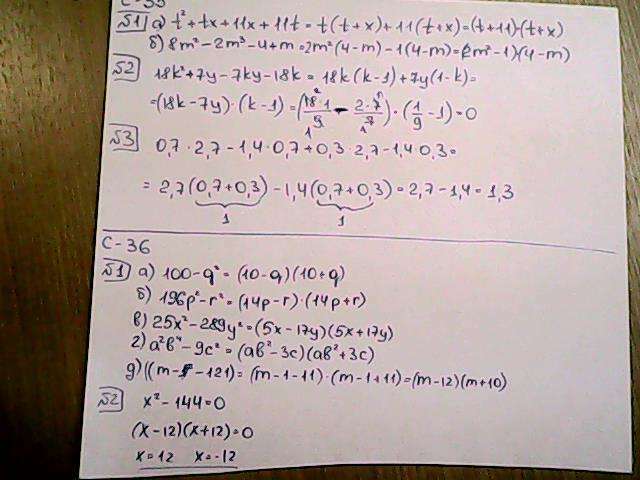 С-35
№1 а) t² + tx + 11x + 11t = t(t+x) + 11(t+x) = (t+11)·(t+x)
б) 8m² - 2m³ - 4 + m = 2m²(4-m) - 1(4-m) = (2m²-1)(4-m)
№2 18k² + 7y - 7ky - 18k = 18k(k-1) + 7y(1-k) =
= (18k - 7y)·(k-1) = (18·1/9 - 2·7/7)·(1/9 - 1) = 0
№3 0,7·2,7 - 1,4·0,7 + 0,3·2,7 - 1,4·0,3 =
= 2,7(0,7+0,3) - 1,4(0,7+0,3) = 2,7 - 1,4 = 1,3
1 1
С-36
№1 а) 100 - q² = (10-q)(10+q)
б) 196p² - r² = (14p-r)·(14p+r)
в) 25x² - 289y² = (5x-17y)(5x+17y)
г) a²b⁴ - 9c² = (ab²-3c)(ab²+3c)
д) ((m- -121) = (m-1-11)·(m-1+11) = (m-12)(m+10)
№2 x² - 144 = 0
(x-12)(x+12) = 0
x = 12 x = -12